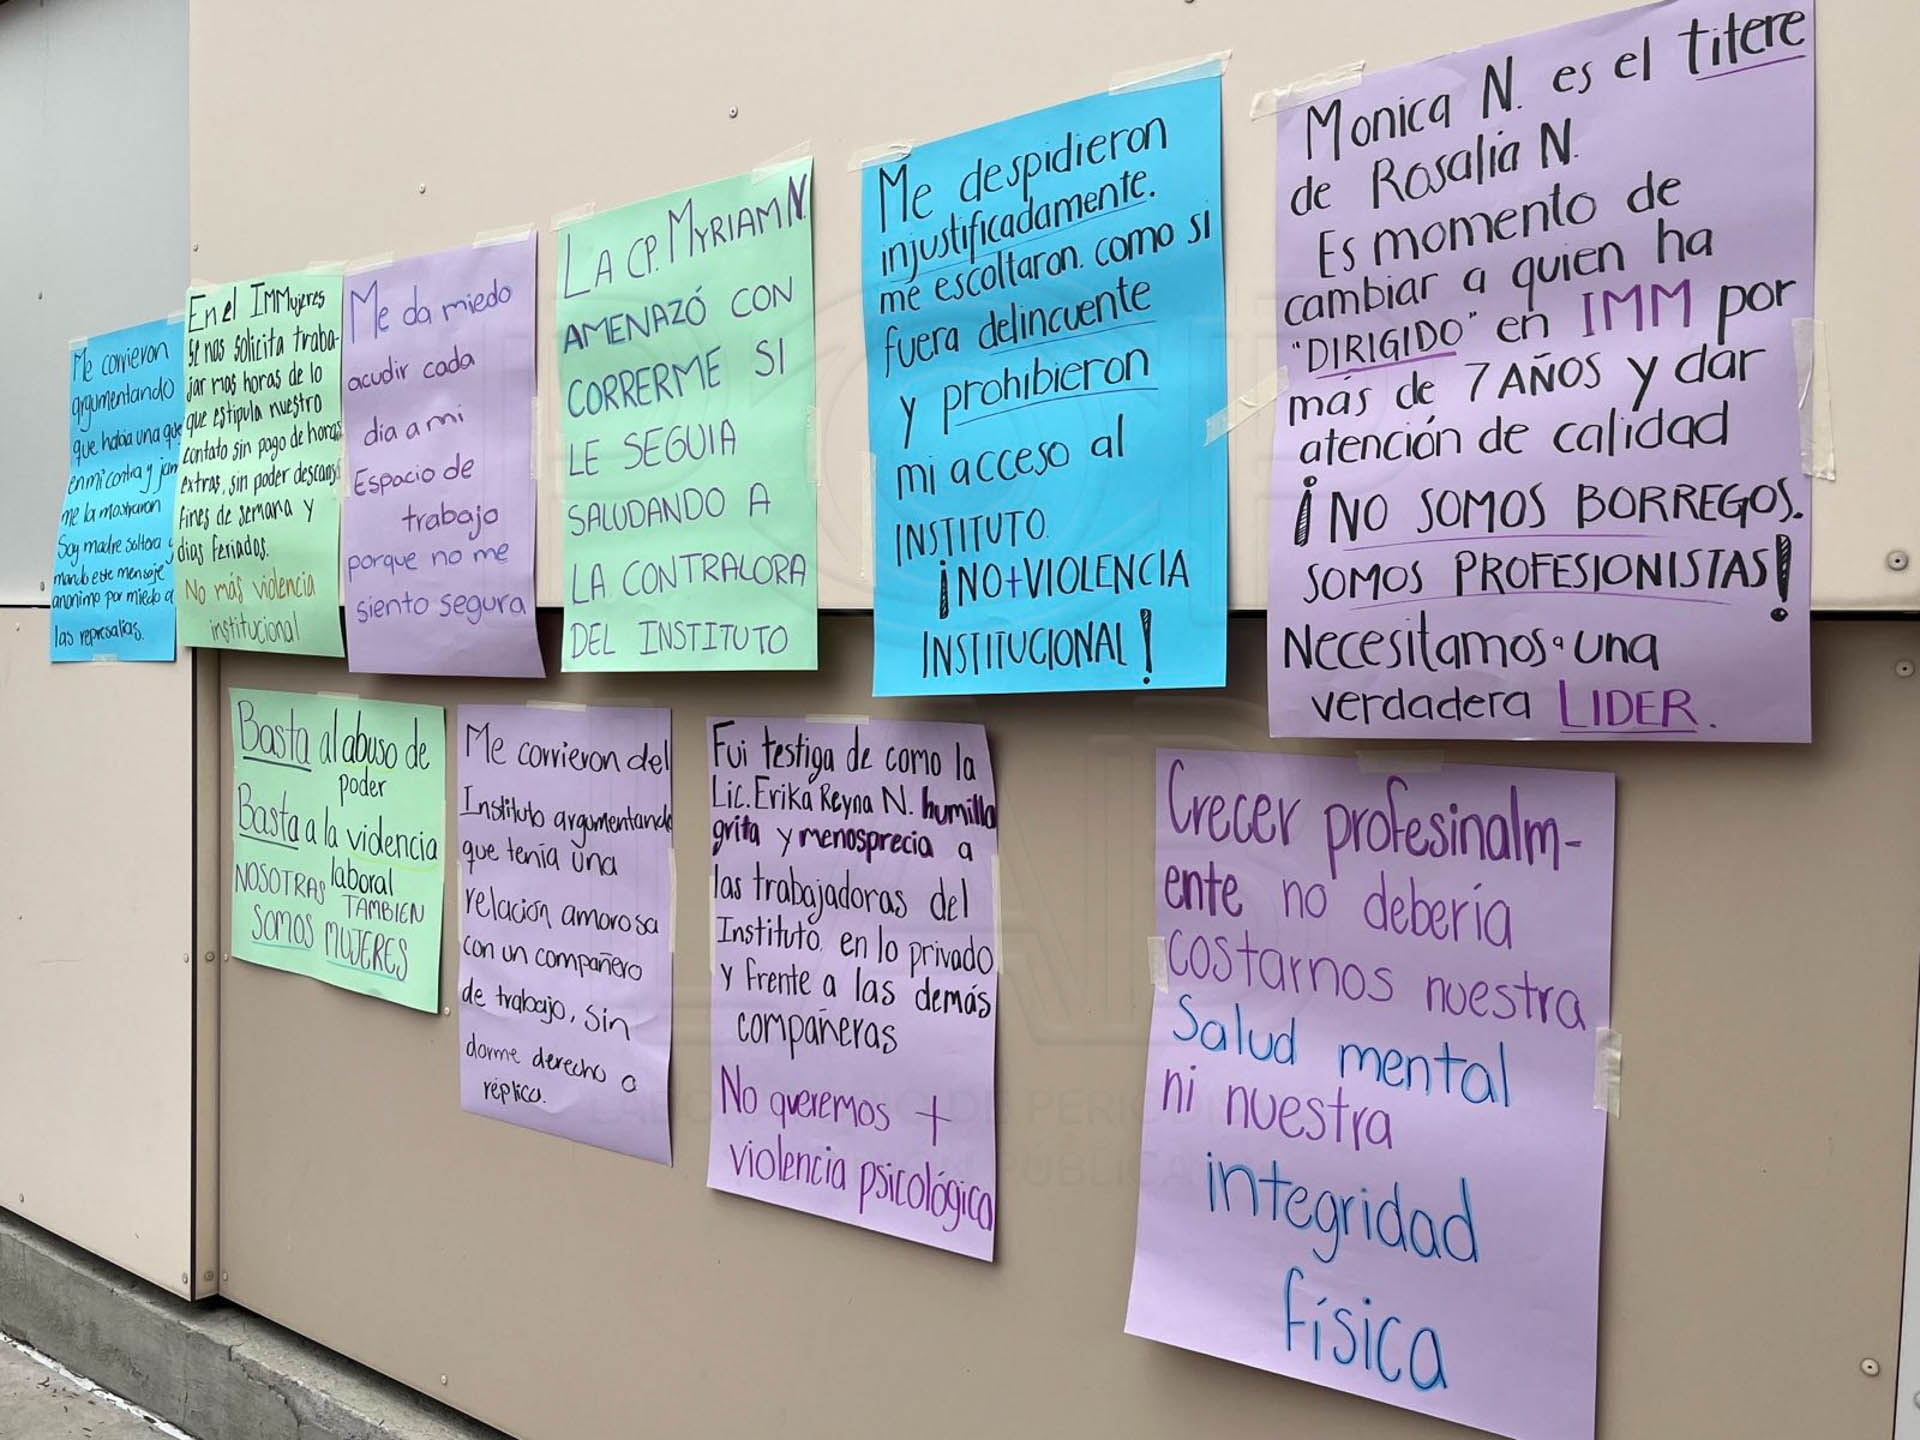 Me corrieron
argumentando
que había una que
en mi contra y jam
me la mostraron
Soy madre soltera y
mando este mensaje
anonimo por miedo a
las represalias.
En el IMMujeres
se nos solicita traba-
jar mas horas de lo
que estipula nuestro
contato sin pago de horas
extras, sin poder descans
fines de semana y
dias feriados.
No más violencia
institucional
Me da miedo
acudir cada
dia a mi
Espacio de
trabajo
porque no me
siento segura
LA CP. MYRIAM N.
AMENAZÓ CON
CORRERME SI
LE SEGUIA
SALUDANDO A
LA CONTRALORA
DEL INSTITUTO
Me despidieron
injustificadamente.
me escoltaron. como si
fuera delincuente
y prohibieron
mi acceso al
INSTITUTO.
¡NO+VIOLENCIA
INSTITUCIONAL!
Monica N. es el titere
de Rosalia N.
Es momento de
cambiar a quien ha
"DIRIGIDO" en IMM por
más de 7 AÑOS y dar
atención de calidad
¡NO SOMOS BORREGOS.
SOMOS PROFESIONISTAS!
Necesitamos a una
verdadera LIDER.
Basta al abuso de
poder
Basta a la violencia
laboral
NOSOTRAS TAMBIEN
SOMOS MUJERES
Me corrieron del
Instituto argumentando
que tenía una
relación amorosa
con un compañero
de trabajo, sin
darme derecho a
réplica.
Fui testiga de como la
Lic. Erika Reyna N. humilla
grita y menosprecia a
las trabajadoras del
Instituto, en lo privado
y frente a las demás
compañeras
No queremos +
violencia psicológica
Crecer profesinalm-
ente no debería
costarnos nuestra
Salud mental
ni nuestra
integridad
física